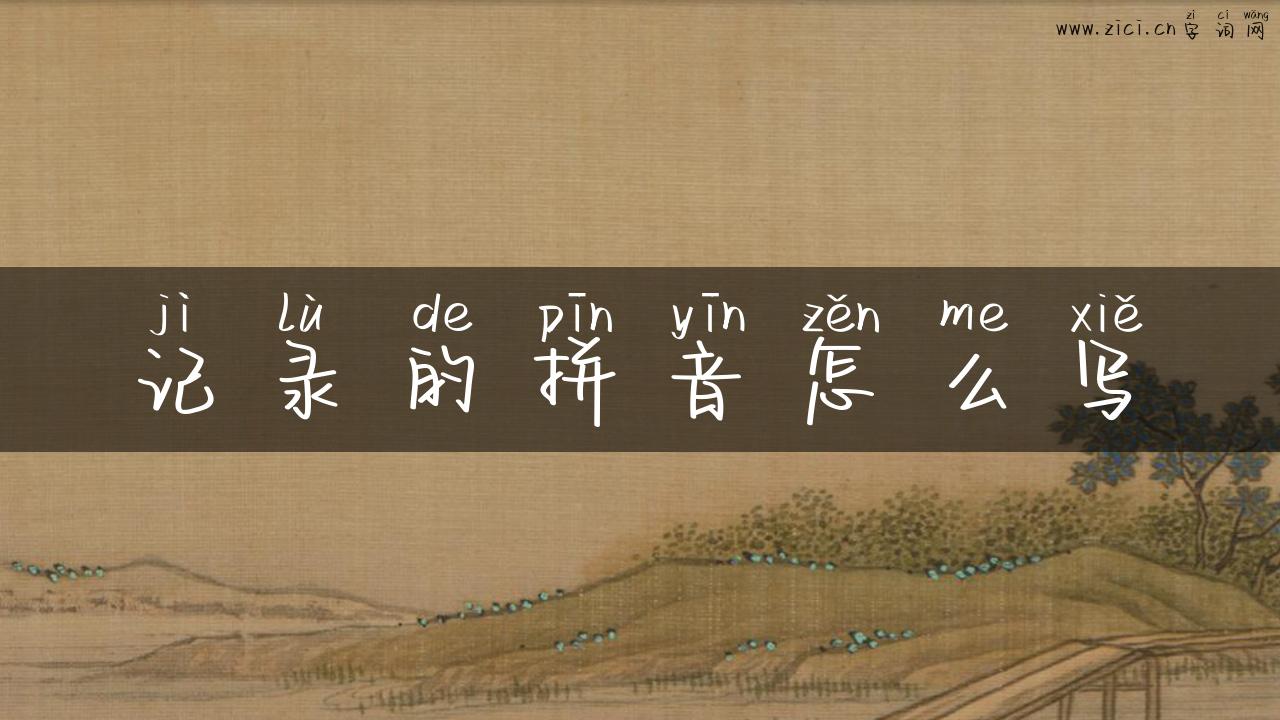 zì cí wǎng
www.zici.cn字词网
jì lù de pīn yīn zěn me xiě
记录的拼音怎么写